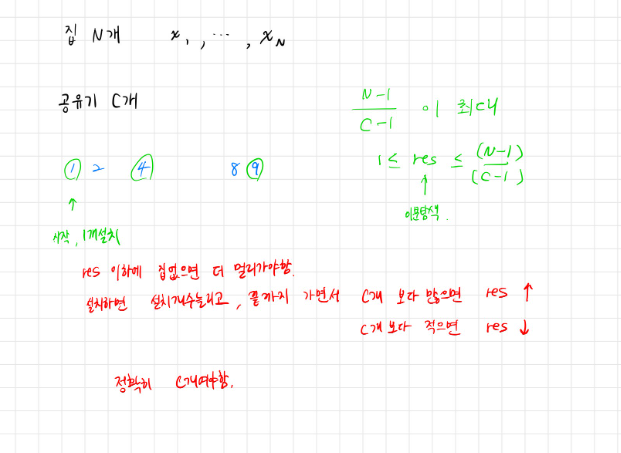 집 N개 x₁, ⋯, x_N
공유기 C개
N-1 / C-1 이 최대
1 ≤ res ≤ (N-1) / (C-1)
↑
이분탐색.
① 2 ④ 8 ⑨
↑
시작, 1개설치
res 이하에 집없으면 더 멀리가야함.
설치하면 설치개수늘리고, 끝까지 가면서 C개 보다 많으면 res ↑
C개 보다 적으면 res ↓
정확히 C개여야함.